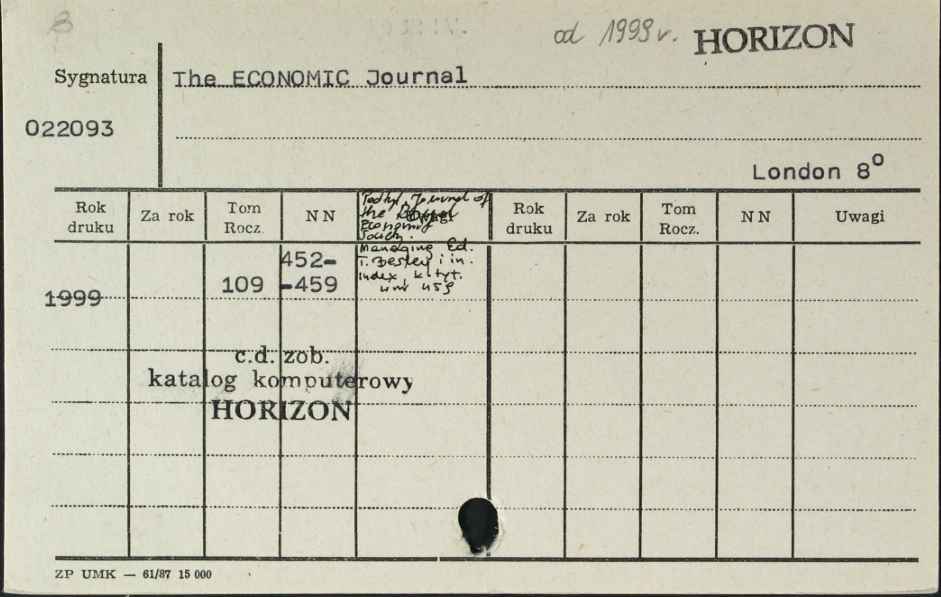 8
od 1999 r. HORIZON
Sygnatura The ECONOMIC Journal
022093
London 8⁰
Rok druku Za rok Tom Rocz. NN Uwagi Rok druku Za rok Tom Rocz. NN Uwagi
Journal of
the
Economic
Managing Ed.
T. Besley i in.
Index, k. tyt.
w nr 459
452-
1999 109 -459
c.d. zob.
katalog komputerowy
HORIZON
ZP UMK — 61/87 15 000